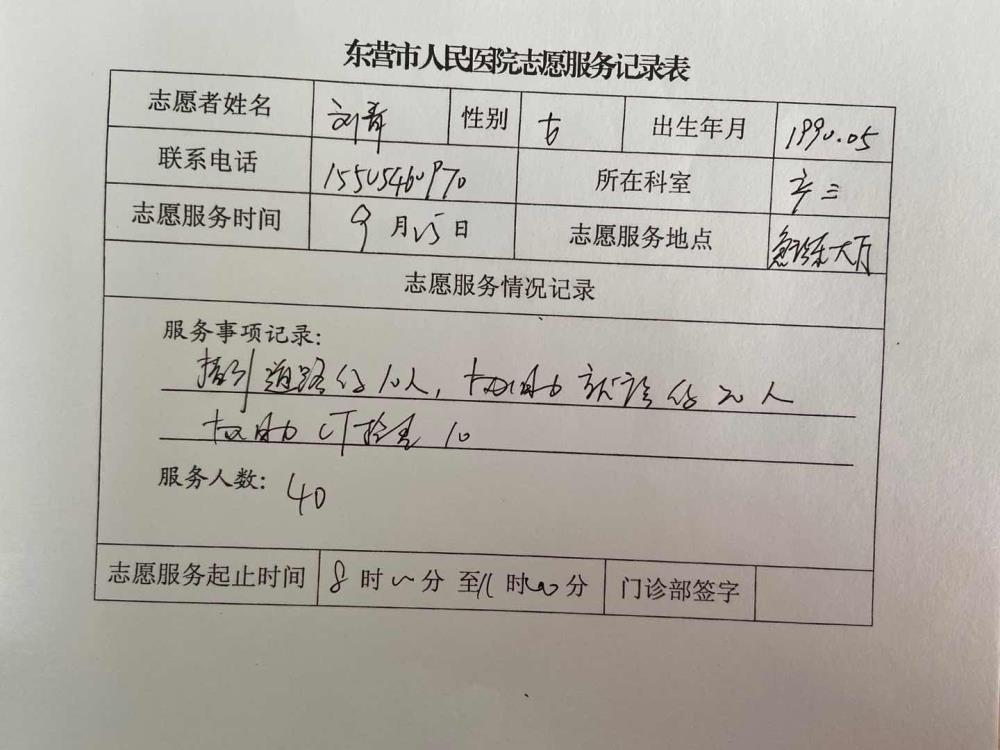 东营市人民医院志愿服务记录表
志愿者姓名 刘青 性别 女 出生年月 1990.05
联系电话 15505460970 所在科室
志愿服务时间 9月25日 志愿服务地点 急诊大厅
志愿服务情况记录
服务事项记录:
指引道路约10人, 协助就诊约20人
协助CT检查10
服务人数: 40
志愿服务起止时间 8时00分至11时00分 门诊部签字